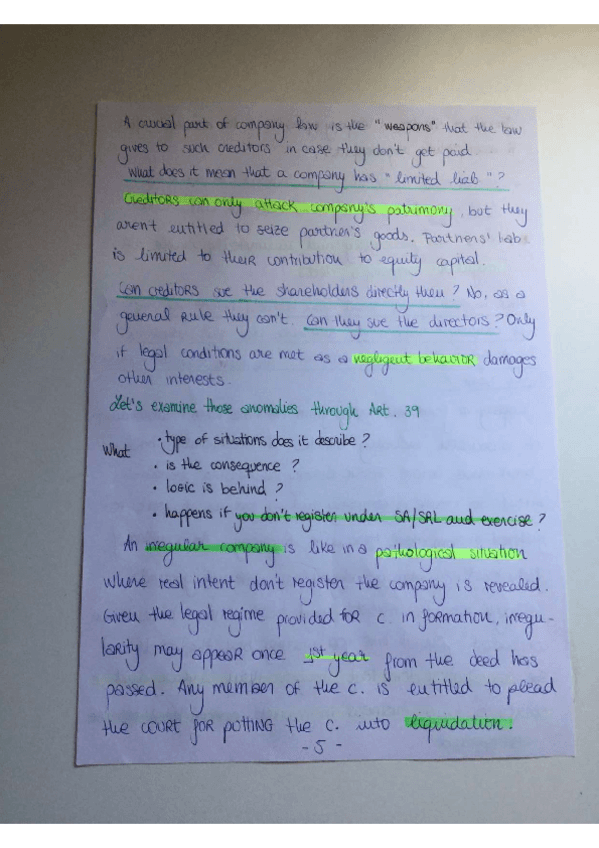 A crucial part of company law is the "weapons" that the law
gives to such creditors in case they don't get paid.
What does it mean that a company has "limited liab"?
Creditors can only attack company's patrimony, but they
arent entitled to seize partner's goods. Partners' liab.
is limited to their contribution to equity capital.
Can creditors sue the shareholders directly then? No, as a
general rule they can't. Can they sue the directors? Only
if legal conditions are met as a negligent behavior damages
other interests.
Let's examine those anomalies through Art. 39
What
• type of situations does it describe?
• is the consequence?
• logic is behind?
• happens if you don't register under SA/SRL and exercise?
An irregular company is like in a pathological situation
where real intent don't register the company is revealed.
Given the legal regime provided for c. in formation, irregu-
larity may appear once 1st year from the deed has
passed. Any member of the c. is entitled to plead
the court for putting the c. into liquidation.
- 5 -